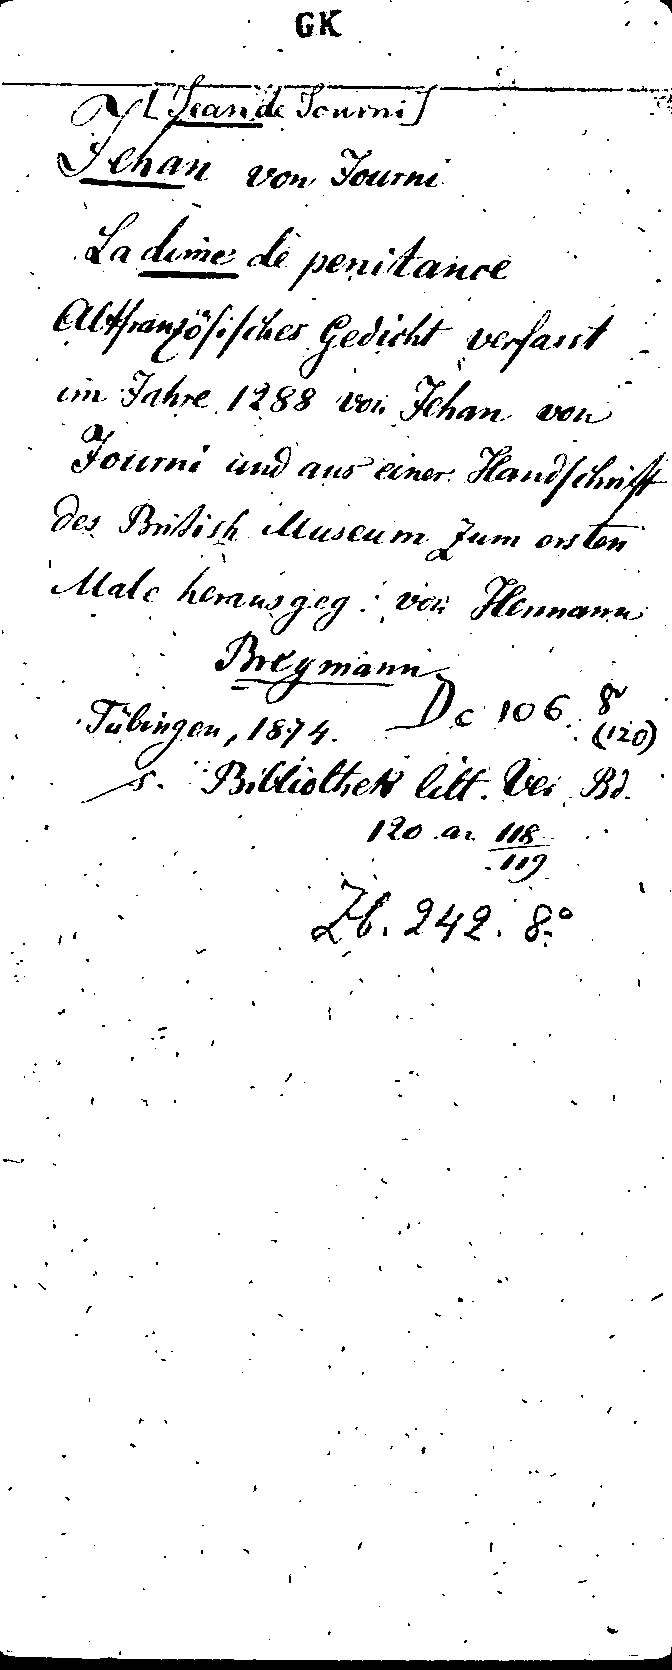 GK
[Jean de Journi]
Jehan von Journi
La dime de penitance
Altfranzösisches Gedicht verfasst
im Jahre 1288 von Jehan von
Journi und aus einer Handschrift
des British Museum zum ersten
Male herausgeg. von Hermann
Breymann
Tübingen, 1874. Dc 106. 8
(120)
s. Bibliothek litt. Ver. Bd.
120 an 118
119
Zb. 242. 8°